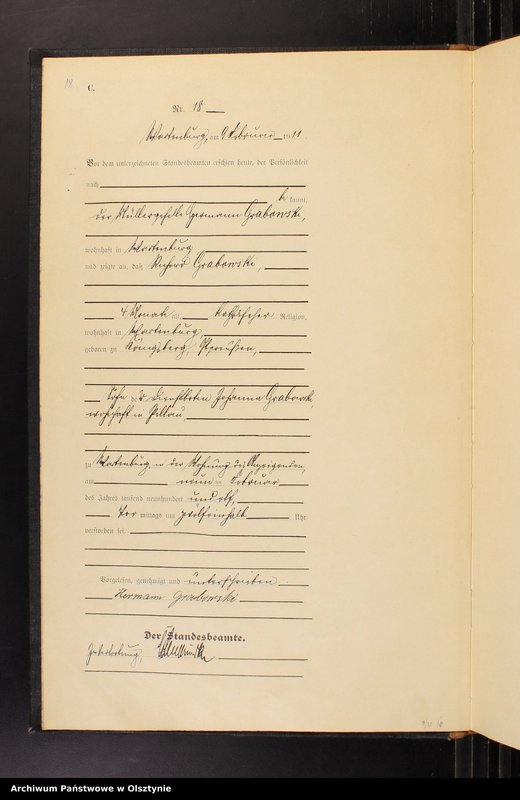 18
C.
Nr. 18
Wartenburg, am 9 Februar 1911.
Vor dem unterzeichneten Standesbeamten erschien heute, der Persönlichkeit
nach
be kannt,
der Müllergeselle Hermann Grabowski,
wohnhaft in Wartenburg
und zeigte an, daß Richard Grabowski,
4 Monate alt, katholischer Religion,
wohnhaft in Wartenburg,
geboren zu Königsberg, Ostpreußen,
Sohn der Dienstboten Johanna Grabowski,
wohnhaft in Pillau,
zu Wartenburg in der Wohnung des Anzeigenden,
am neun ten Februar
des Jahres tausend neunhundert und elf,
Vor mittags um zwölfeinhalb Uhr
verstorben sei.
Vorgelesen, genehmigt und unterschrieben
Hermann Grabowski
Der Standesbeamte.
In Vertretung,
Archiwum Państwowe w Olsztynie